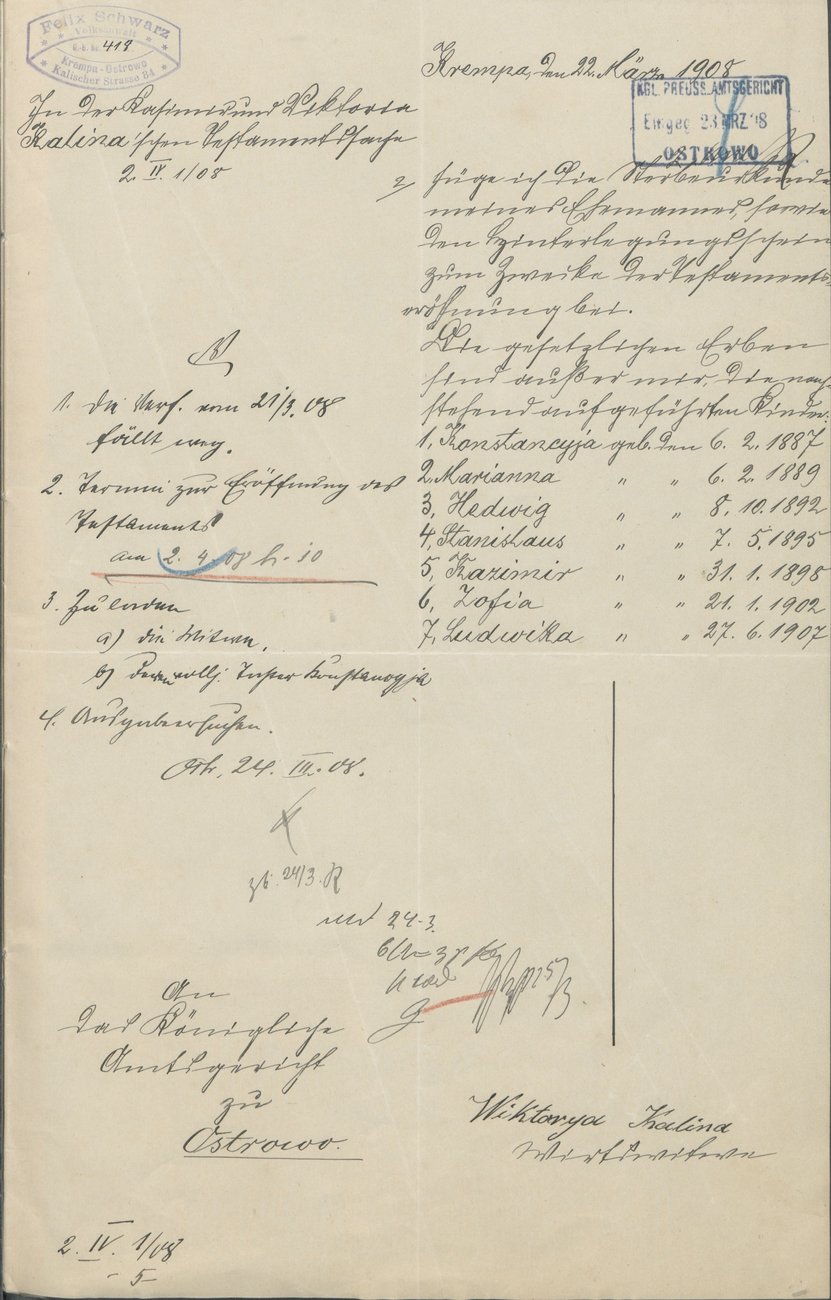 Felix Schwarz
Volksanwalt
G.-b. Nr. 418
Krempa-Ostrowo
Kalischer Strasse 84
Krempa, den 22. März 1908
KGL. PREUSS. AMTSGERICHT
Eingeg 23 MRZ 08
OSTROWO
In der Kasimir und Viktoria
Kalina'schen Testamentssache
2. IV. 1/08
füge ich die Sterbeurkunde
meines Ehemannes, sowie
den Hinterlegungsschein
zum Zwecke der Testaments-
eröffnung bei.
Die gesetzlichen Erben
sind außer mir, die nach-
stehend aufgeführten Kinder:
1, Konstancyja geb. den 6. 2. 1887
2, Marianna " " 6. 2. 1889
3, Hedwig " " 8. 10. 1892
4, Stanislaus " " 7. 5. 1895
5, Kazimir " " 31. 1. 1898
6, Zofia " " 21. 1. 1902
7, Ludwika " " 27. 6. 1907
Wiktorya Kalina
Wirtswitwe
1. Die Verf. vom 21/3. 08
fällt weg.
2. Termin zur Eröffnung des
Testaments
am 2. 4. 08 h. 10
3. Zu laden
a) die Witwe,
b) deren vollj. Tochter Konstancyja
4. Ausgabeersuchen.
Ostr, 24. III. 08.
24/3.
24.3.
An
das Königliche
Amtsgericht
zu
Ostrowo.
2. IV. 1/08
- 5 -